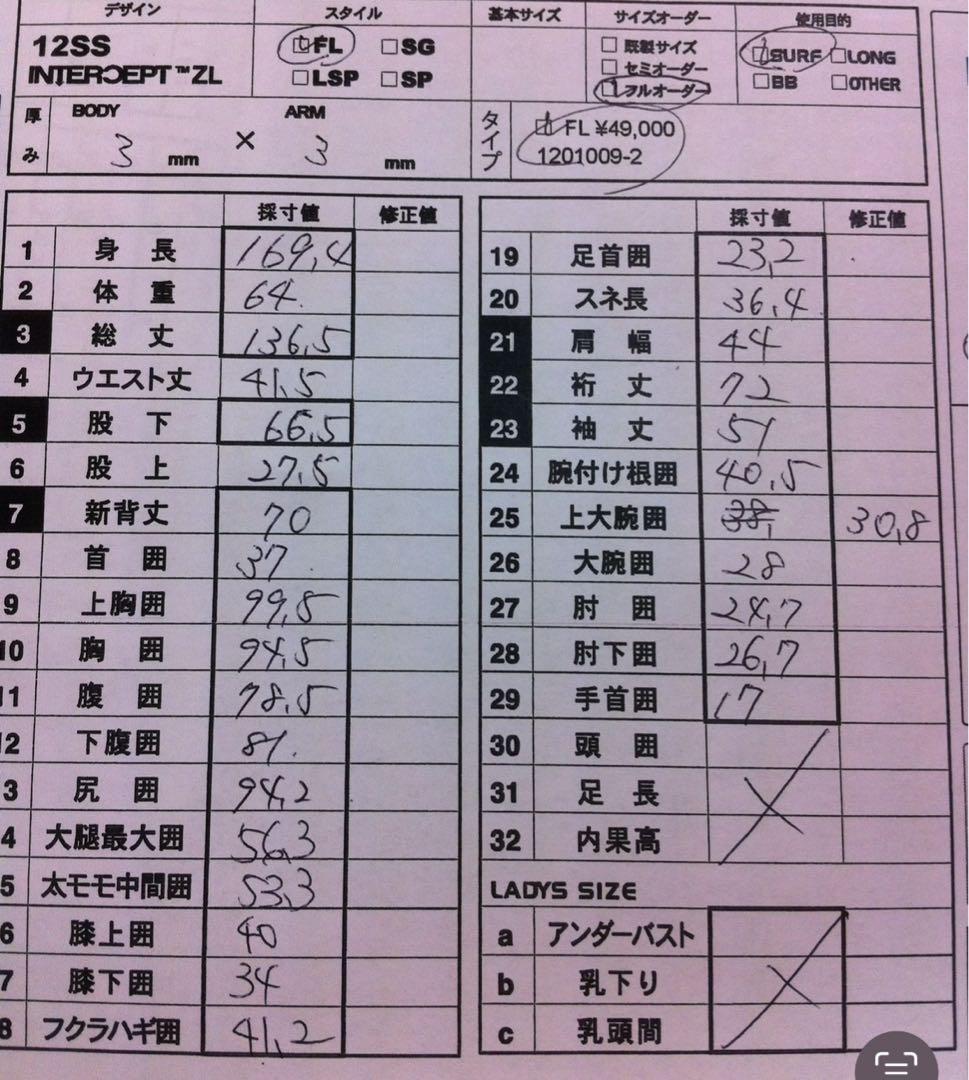 デザイン スタイル 基本サイズ サイズオーダー 使用目的
12SS INTERCEPT™ZL
FL SG
LSP SP
既製サイズ
セミオーダー
フルオーダー
SURF LONG
BB OTHER
厚み BODY 3 mm × ARM 3 mm
タイプ FL ¥49,000
1201009-2
採寸値 修正値
1 身長 169,4
2 体重 64.
3 総丈 136,5
4 ウエスト丈 41,5
5 股下 66,5
6 股上 27,5
7 新背丈 70
8 首囲 37
9 上胸囲 99,5
10 胸囲 94,5
11 腹囲 78,5
12 下腹囲 81.
3 尻囲 94,2
4 大腿最大囲 56,3
5 太モモ中間囲 53,3
6 膝上囲 40
7 膝下囲 34
8 フクラハギ囲 41,2
採寸値 修正値
19 足首囲 23,2
20 スネ長 36,4
21 肩幅 44
22 裄丈 72
23 袖丈 51
24 腕付け根囲 40,5
25 上大腕囲 38, 30,8
26 大腕囲 28
27 肘囲 24,7
28 肘下囲 26,7
29 手首囲 17
30 頭囲
31 足長
32 内果高
LADYS SIZE
a アンダーバスト
b 乳下り
c 乳頭間